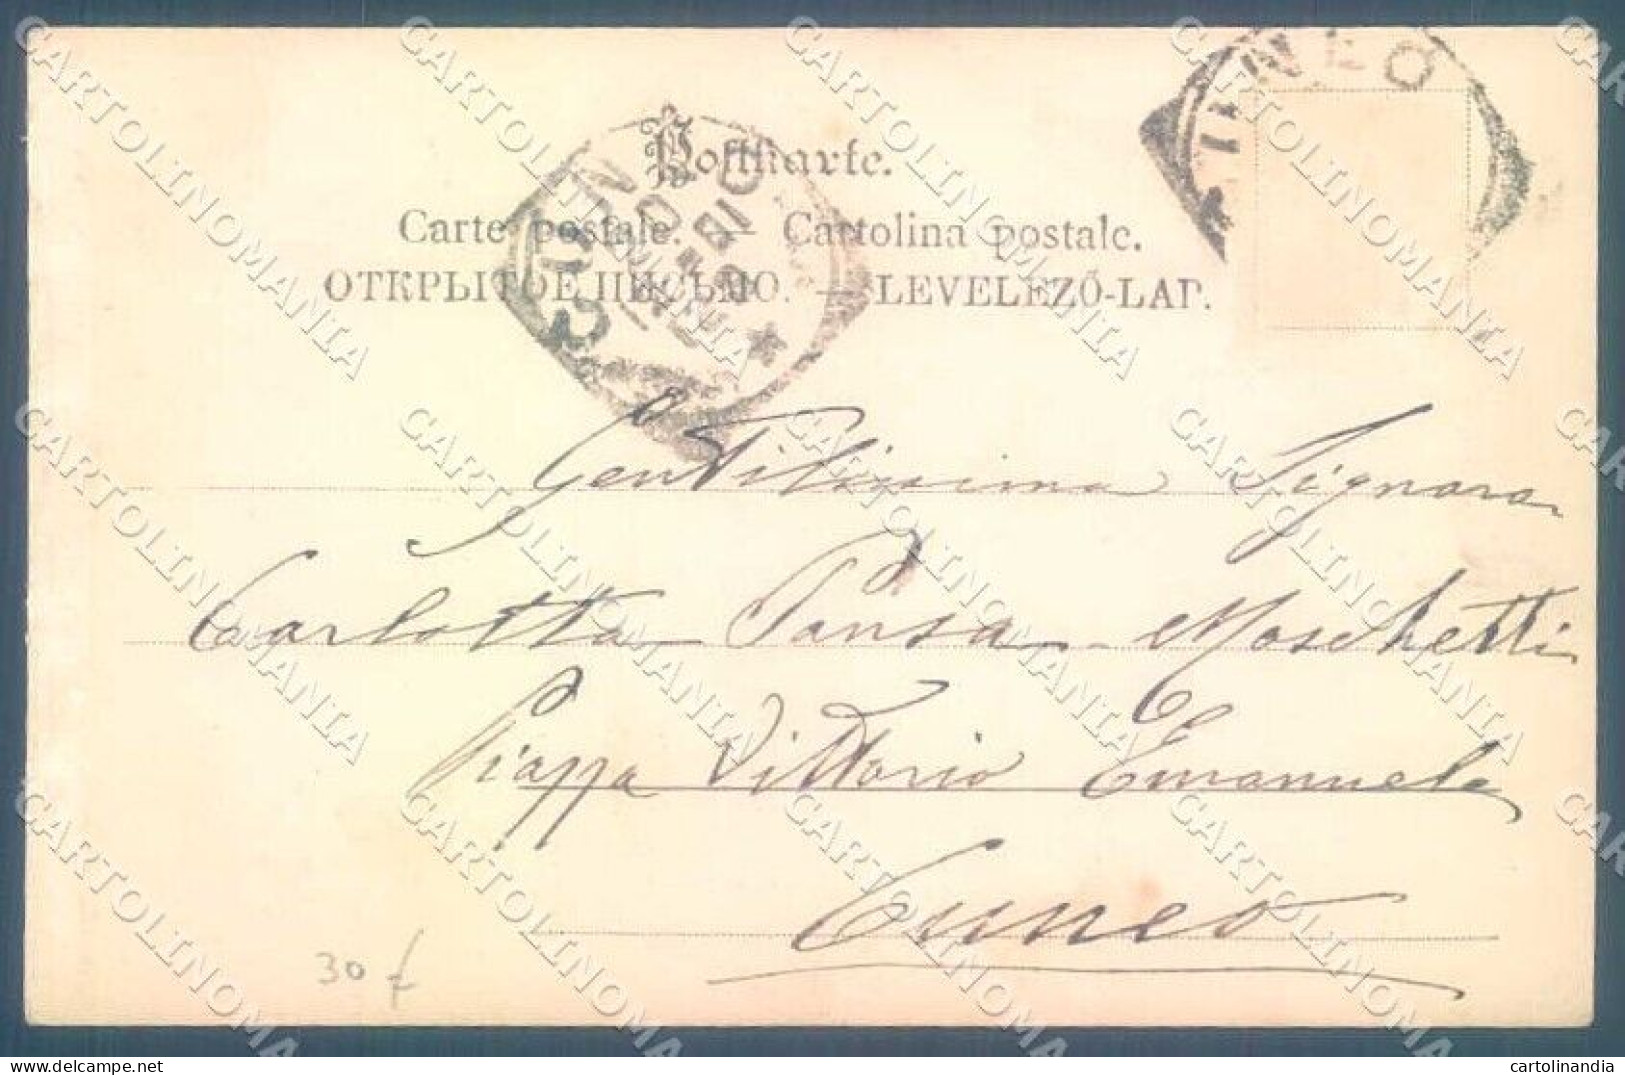 Postkarte.
Carte postale. Cartolina postale.
ОТКРЫТОЕ ПИСЬМО. — LEVELEZŐ-LAP.
CUNEO
CUNEO
Gentilissima Signora
Carlotta Pansa-Moschetti
Piazza Vittorio Emanuele
Cuneo
30 f
CARTOLINOMANIA
cartolinandia